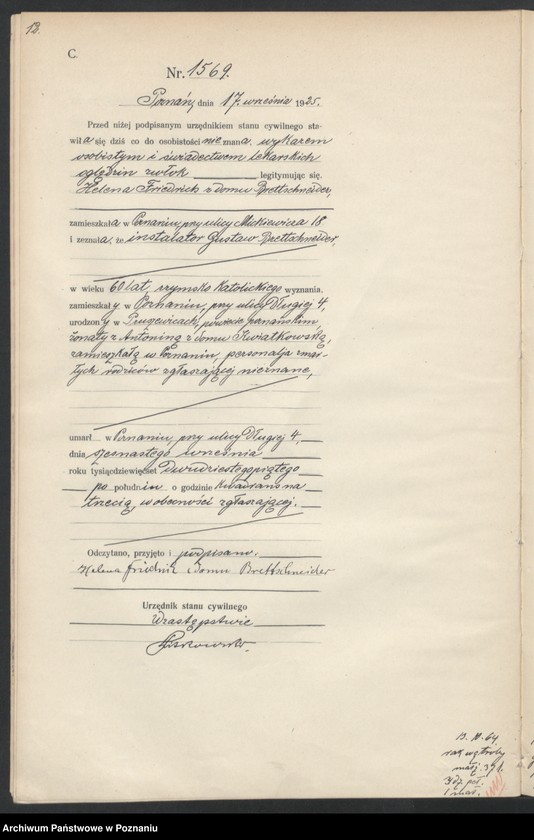 13.
C.
Nr. 1569.
Poznań, dnia 17. września 1925.
Przed niżej podpisanym urzędnikiem stanu cywilnego sta-
wiła się dziś co do osobistości nieznana, wykazem
osobistym i świadectwem lekarskich
oględzin zwłok legitymując się.
Helena Friedrich z domu Brettschneider,
zamieszkała w Poznaniu, przy ulicy Mickiewicza 18
i zeznała, że instalator Gustaw Brettschneider,
w wieku 60 lat, rzymsko katolickiego wyznania,
zamieszkały w Poznaniu, przy ulicy Długiej 4,
urodzony w powiecie poznańskim
żonaty z Antoniną z domu Kwiatkowską,
zamieszkałą w Poznaniu, personalja zmar-
łych rodziców zgłaszającej nieznane,
umarł w Poznaniu, przy ulicy Długiej 4,
dnia września
roku tysiącdziewięćset dwudziestegopiątego
po południu o godzinie kwadrans na
trzecią, w obecności zgłaszającej.
Odczytano, przyjęto i podpisano.
Helena Friedrich Domu Brettschneider
Urzędnik stanu cywilnego
W zastępstwie
rak wątroby
małż.
1 mał.
Archiwum Państwowe w Poznaniu